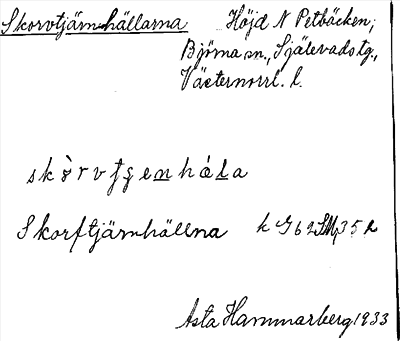 Skorvtjärnhällarna Höjd N Petbäcken,
Björna sn., Själevads tg.,
Västernorrl. l.
skòrvʃɡenhála
Skorftjärnhällna k G 62 SM, 35 R
Asta Hammarberg 1933